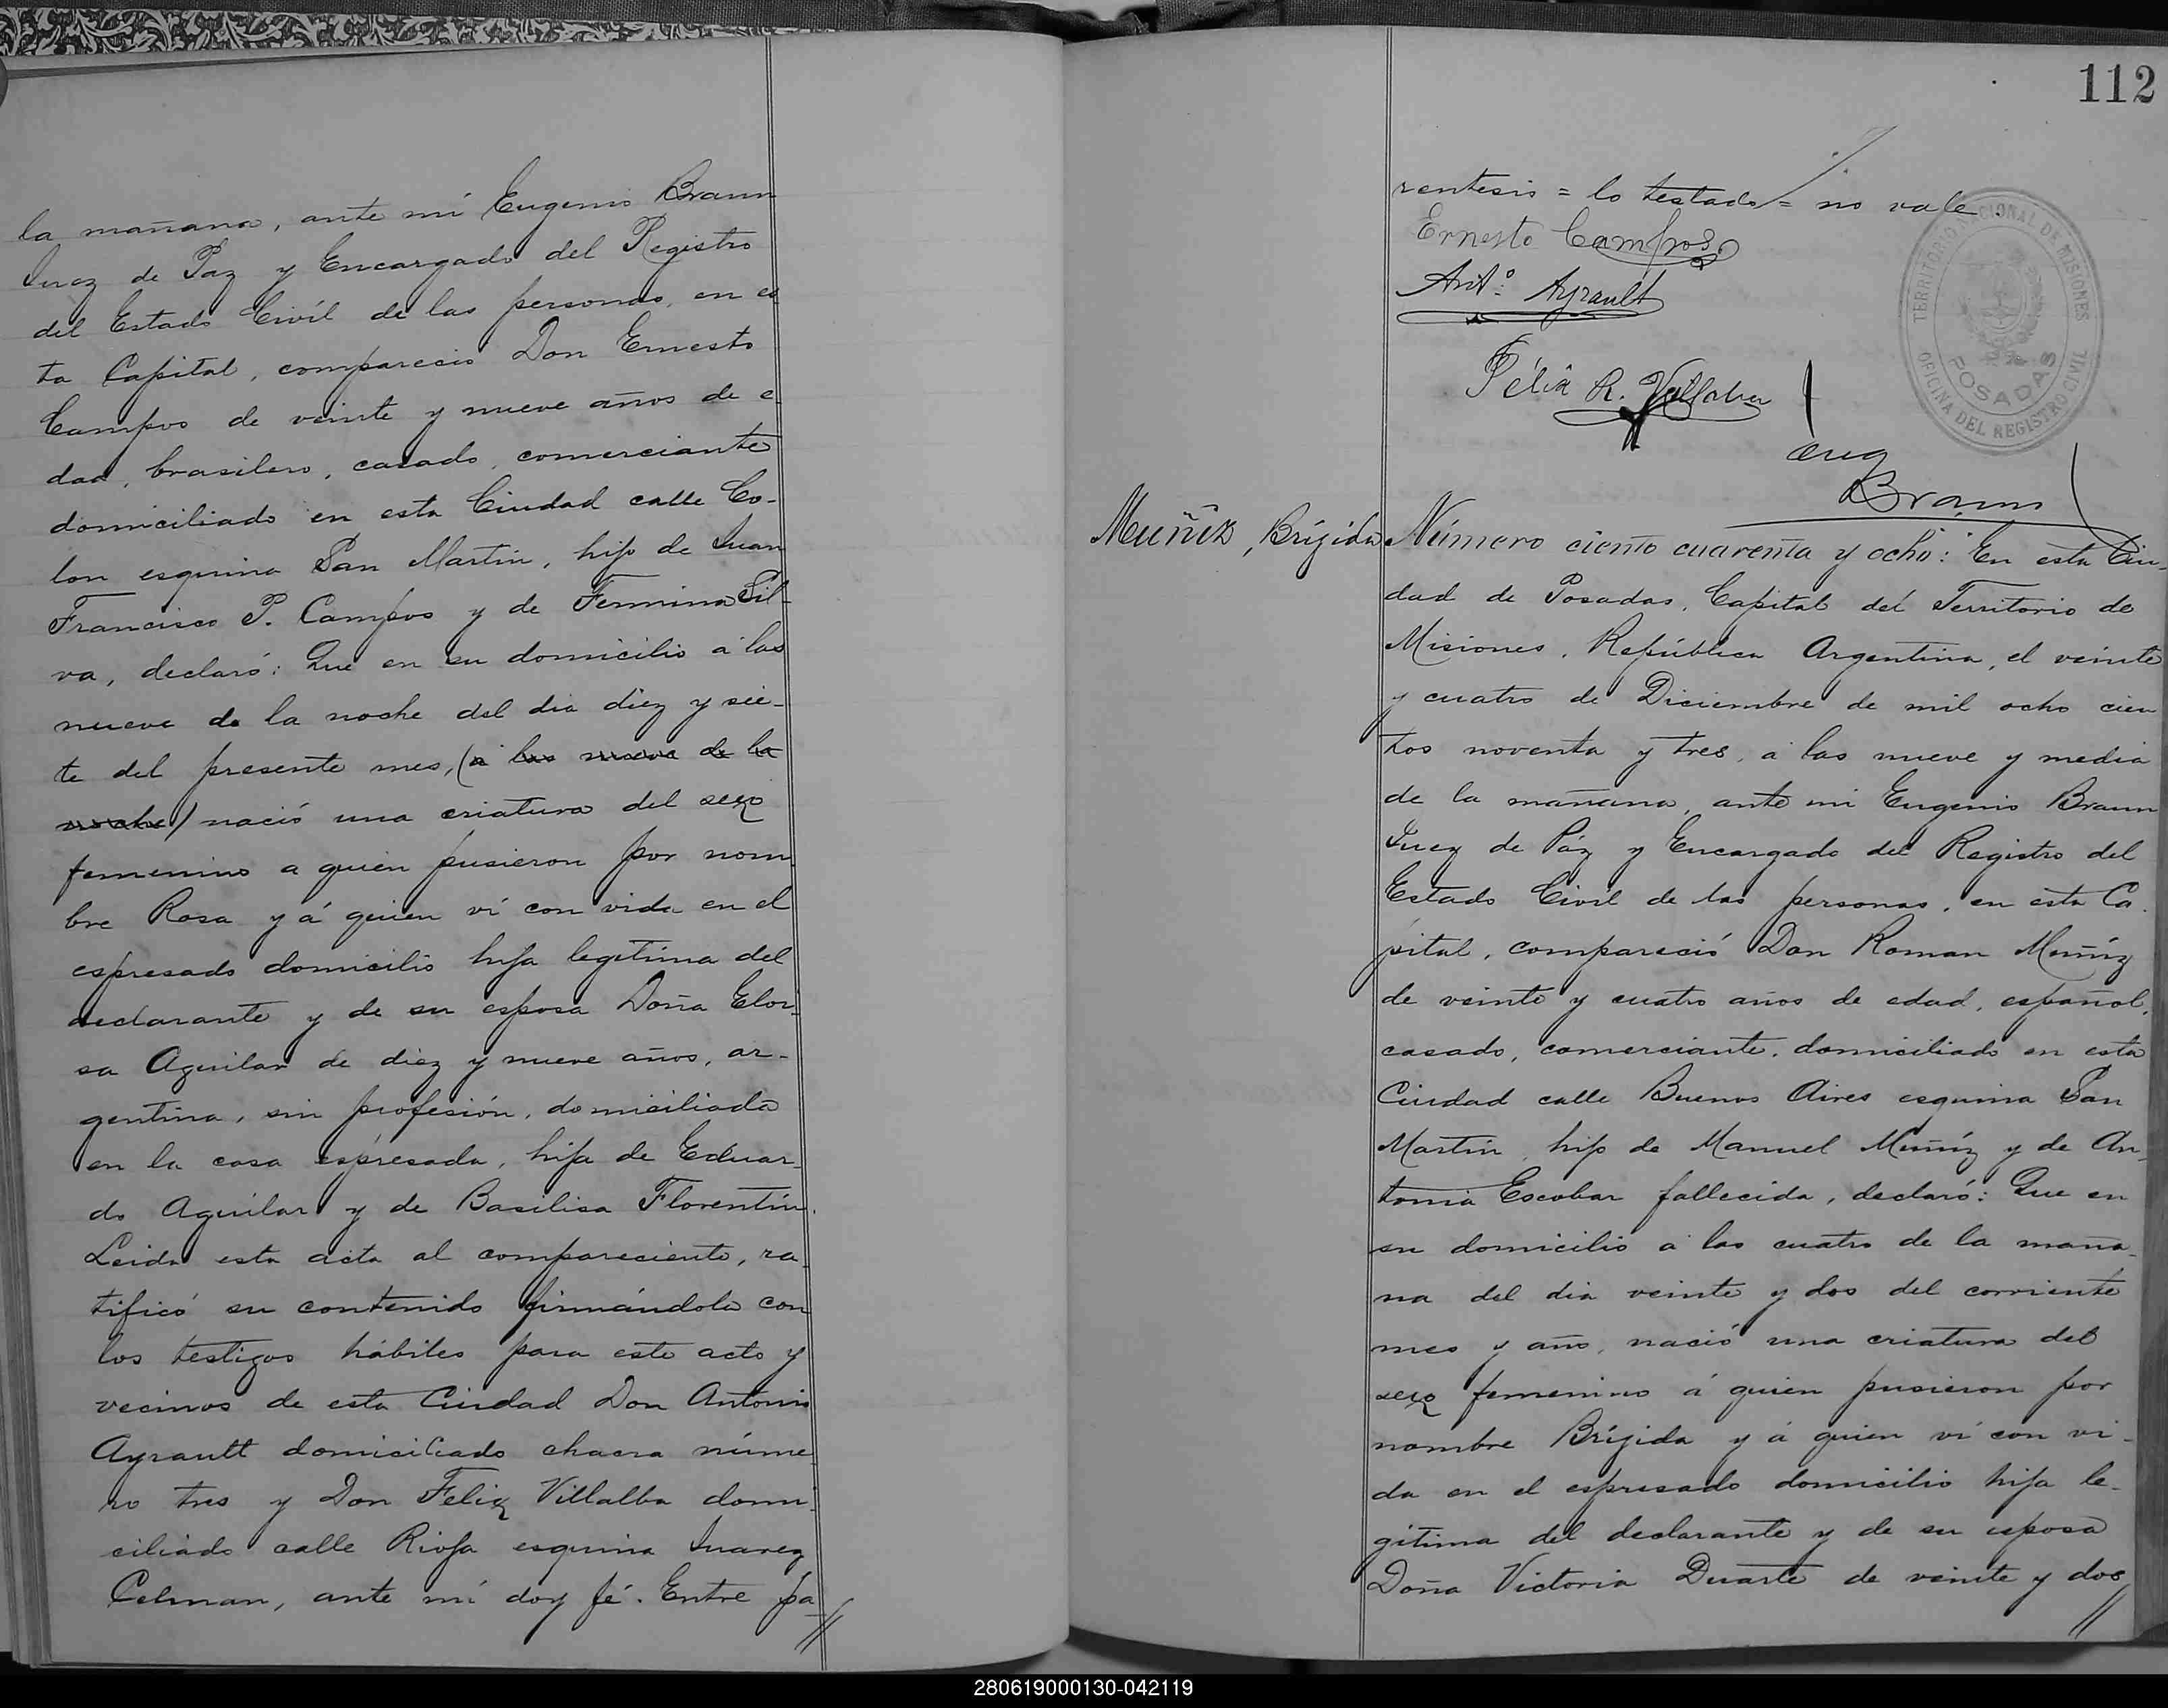 la mañana, ante mí Eugenio Braun
Juez de Paz y Encargado del Registro
del Estado Civíl de las personas, en es
ta Capital, comparecio Don Ernesto
Campos de veinte y nueve años de e-
dad, brasilero, casado, comerciante
domiciliado en esta Ciudad calle Co-
lon esquina San Martin, hijo de Juan
Francisco P. Campos y de Fermina Sil-
va, declaró: Que en su domicilio a las
nueve de la noche del dia diez y sie-
te del presente mes, (a las nueve de la
noche) nació una criatura del sexo
femenino a quien pusieron por nom
bre Rosa y á quien ví con vida en el
espresado domicilio hija legítima del
declarante y de su esposa Doña Eloi
sa Aguilar de diez y nueve años, ar-
gentina, sin profesión, domiciliada
en la casa espresada, hija de Eduar-
do Aguilar y de Basilisa Florentín.
Leida esta acta al compareciente, ra-
tificó su contenido firmándola con
los testigos hábiles para este acto y
vecinos de esta Ciudad Don Antonio
Ayrault domiciliado chacra núme
ro tres y Don Felix Villalba domi-
ciliado calle Rioja esquina Juarez
Celman, ante mí doy fé. Entre pa
//
112
rentesis = lo testado = no vale.
Ernesto Campos
Ant.º Ayrault
Félix R. Villalba
Eug
Braun
TERRITORIO NACIONAL DE MISIONES
POSADAS
OFICINA DEL REGISTRO CIVIL
Muñiz, Brígida
Número ciento cuarenta y ocho: En esta Ciu-
dad de Posadas, Capital del Territorio de
Misiones, República Argentina, el veinte
y cuatro de Diciembre de mil ocho cien
tos noventa y tres, a las nueve y media
de la mañana, ante mi Eugenio Braun
Juez de Páz y Encargado del Registro del
Estado Civíl de las personas, en esta Ca-
pital, compareció Don Roman Muñíz
de veinte y cuatro años de edad, español,
casado, comerciante, domiciliado en esta
Ciudad calle Buenos Aires esquina San
Martin, hijo de Manuel Muñíz y de An-
tonia Escobar fallecida, declaró: Que en
su domicilio a las cuatro de la maña-
na del dia veinte y dos del corriente
mes y año, nació una criatura del
sexo femenino á quien pusieron por
nombre Brígida y á quien ví con vi-
da en el espresado domicilio hija le-
gítima del declarante y de su esposa
Doña Victoria Duarte de veinte y dos
//
280619000130-042119